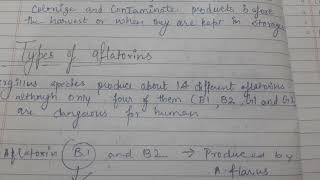 colonize and contaminate products before
the harvest or when they are kept in storage
Types of aflatoxins
ergillus species produce about 14 different aflatoxins
although only four of them (B1, B2, G1 and G2)
are dangerous for human
Aflatoxin B1 and B2 → Produced by
A. flavus